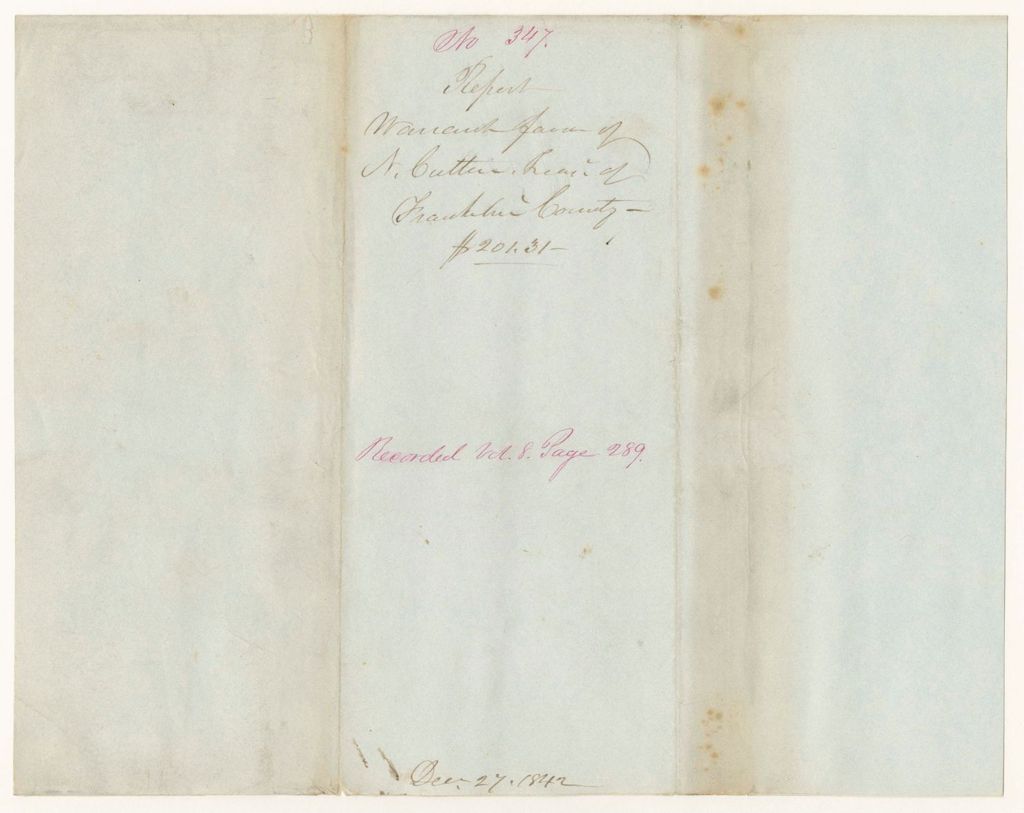 No 347.
Report
Warrant favor of
N. Cutler Treasr of
Franklin County –
$201.31 –
Recorded Vol. 8. Page 289.
Dec. 27. 1842